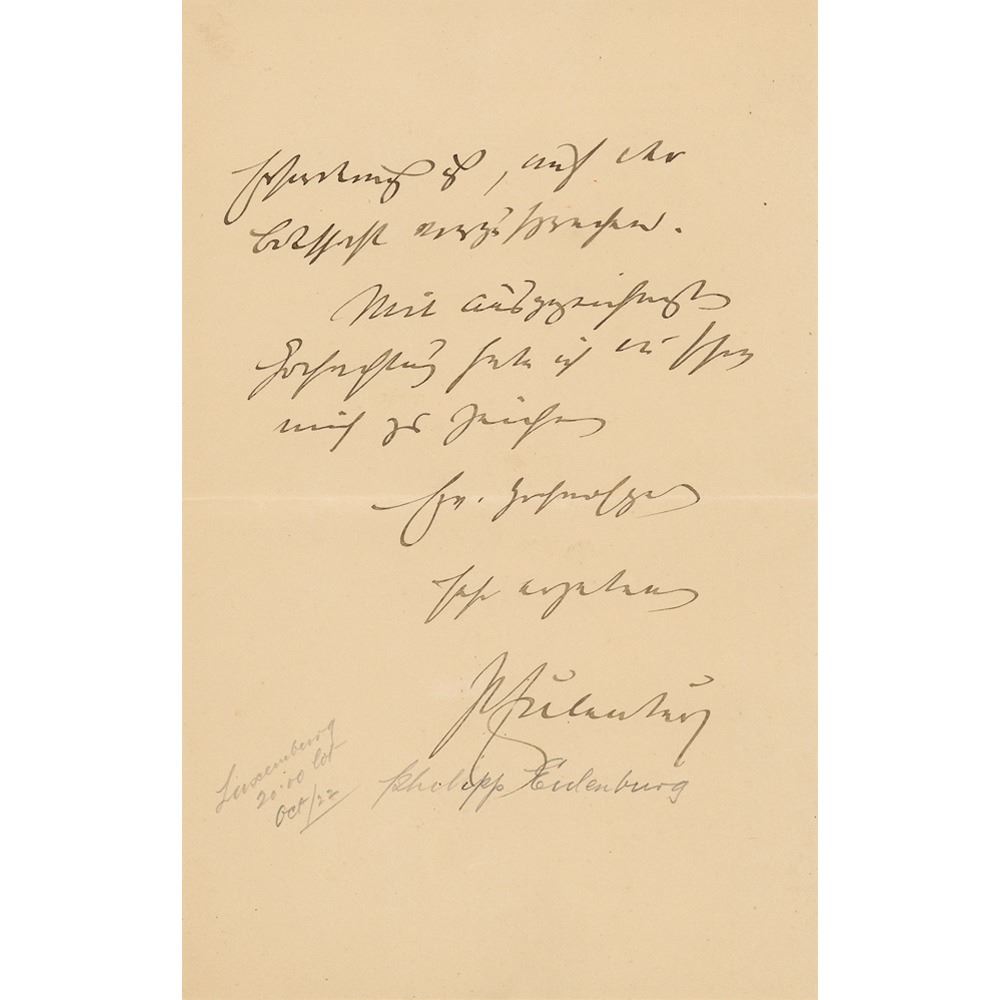 , auf der
Botschaft vorzusprechen.
Mit ausgezeichneter
Hochachtung habe ich die Ehre
mich zu zeichnen
Ew. Hochwohlgeboren
sehr ergebener
PEulenburg
Philipp Eulenburg
Luxemburg
20:00 lot
Oct/22